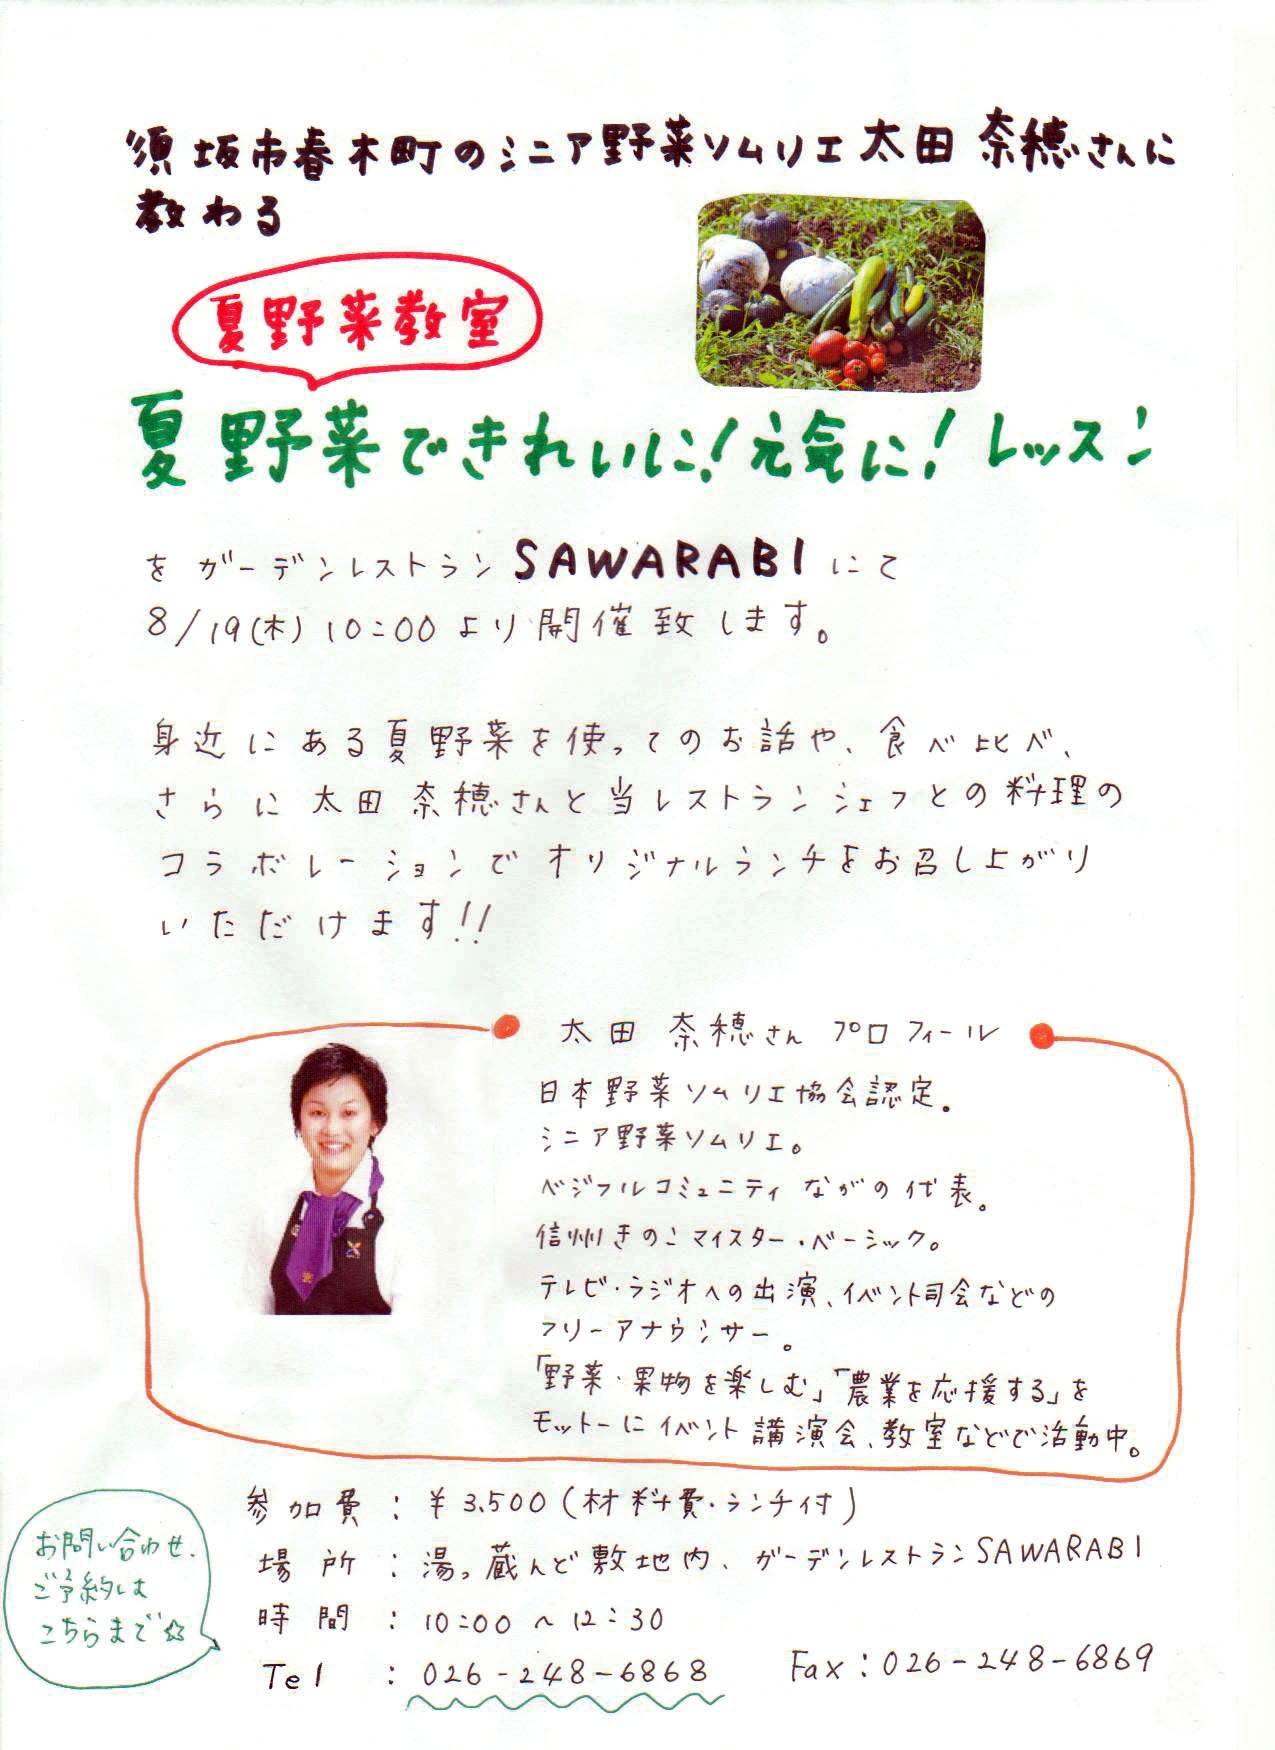 須坂市春木町のシニア野菜ソムリエ太田 奈穂さんに
教わる
夏野菜教室
夏野菜できれいに!元気に!レッスン
をガーデンレストランSAWARABIにて
8/19(木)10:00より開催致します。
身近にある夏野菜を使ってのお話や、食べ比べ、
さらに太田 奈穂さんと当レストランシェフとの料理の
コラボレーションでオリジナルランチをお召し上がり
いただけます!!
太田 奈穂さん プロフィール
日本野菜ソムリエ協会認定。
シニア野菜ソムリエ。
ベジフルコミュニティながの代表。
信州きのこマイスター・ベーシック。
テレビ・ラジオへの出演、イベント司会などの
フリーアナウンサー。
「野菜・果物を楽しむ」「農業を応援する」を
モットーにイベント講演会、教室などで活動中。
参加費:¥3,500(材料費・ランチ付)
場所:湯っ蔵んど敷地内、ガーデンレストランSAWARABI
時間:10:00~12:30
Tel:026-248-6868 Fax:026-248-6869
お問い合わせ、
ご予約は
こちらまで☆